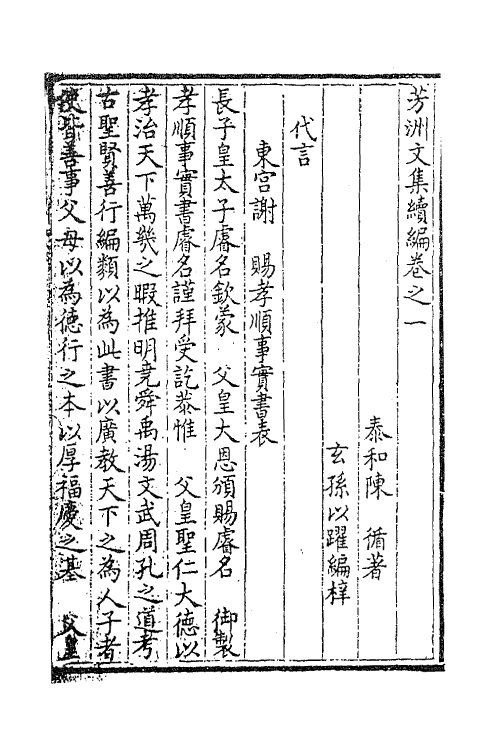 芳洲文集續編卷之一
泰和陳　循著
玄孫以躍編梓
代言
東宮謝　賜孝順事實書表
長子皇太子睿名欽蒙　父皇大恩頒賜睿名　御製
孝順事實書睿名謹拜受訖恭惟　父皇聖仁大德以
孝治天下萬幾之暇推明堯舜禹湯文武周孔之道考
古聖賢善行編類以為此書以廣教天下之為人子者
使皆善事父母以為德行之本以厚福慶之基　父皇